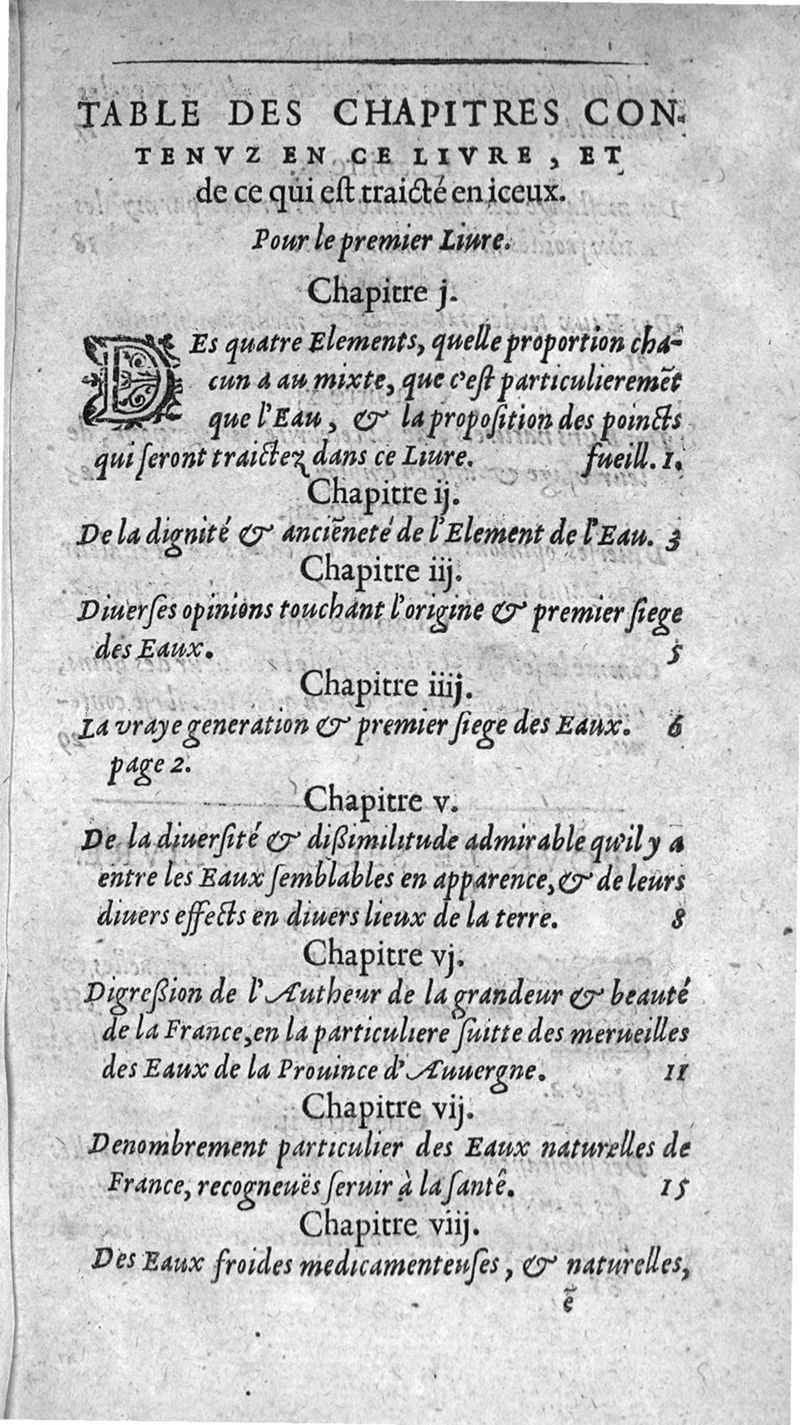 TABLE DES CHAPITRES CON-
TENVZ EN CE LIVRE, ET
de ce qui eſt traicté en iceux.
Pour le premier Liure.
Chapitre j.
DEs quatre Elements, quelle proportion cha-
cun a au mixte, que c'eſt particulieremẽt
que l'Eau, & la propoſition des poincts
qui ſeront traictez dans ce Liure. fueill. 1.
Chapitre ij.
De la dignité & anciẽneté de l'Element de l'Eau. 3
Chapitre iij.
Diuerſes opinions touchant l'origine & premier ſiege
des Eaux. 5
Chapitre iiij.
La vraye generation & premier ſiege des Eaux. 6
page 2.
Chapitre v.
De la diuerſité & dißimilitude admirable qu'il y a
entre les Eaux ſemblables en apparence, & de leurs
diuers effects en diuers lieux de la terre. 8
Chapitre vj.
Digreßion de l'Autheur de la grandeur & beauté
de la France, en la particuliere ſuitte des merueilles
des Eaux de la Prouince d'Auuergne. 11
Chapitre vij.
Denombrement particulier des Eaux naturelles de
France, recogneuës ſeruir à la ſantê. 15
Chapitre viij.
Des Eaux froides medicamenteuſes, & naturelles,
ẽ